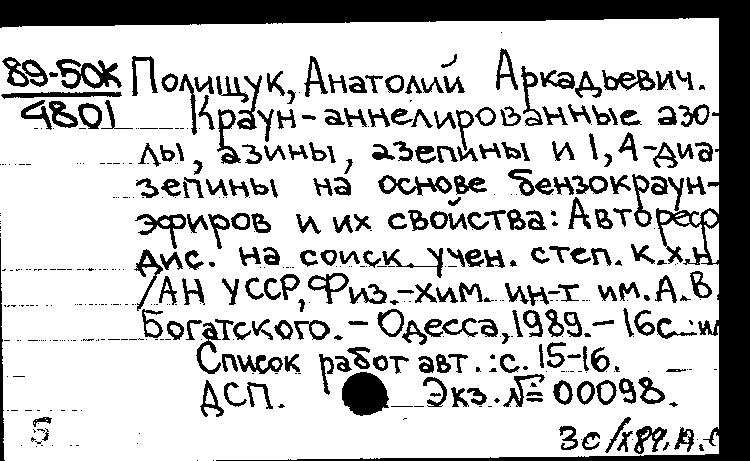 89-50К Полищук, Анатолий Аркадьевич.
4801 Краун-аннелированные азо-
лы, азины, азепины и 1,4-диа-
зепины на основе бензокраун-
эфиров и их свойства: Автореф
дис. на соиск. учен. степ. к.х.н.
/АН УССР, Физ.-хим. ин-т им. А.В.
Богатского. – Одесса, 1989. – 16с.:ил
Список работ авт.: с. 15-16.
ДСП. Экз. № 00098.
5